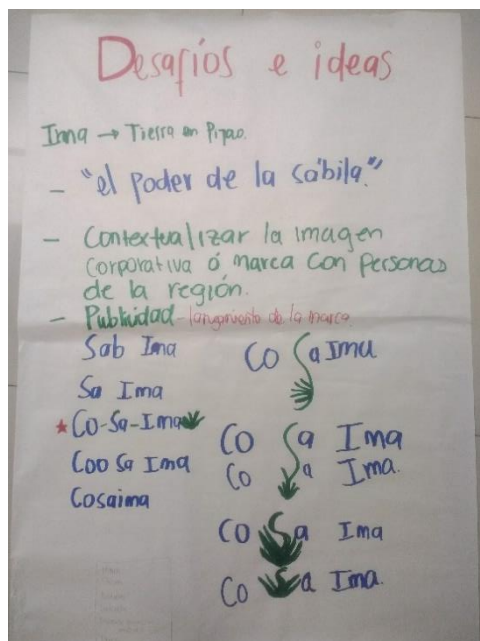 Desafíos e ideas
Imna → Tierra en Pijao.
- "el poder de la sábila."
- Contextualizar la imagen
corporativa ó marca con personas
de la región.
- Publicidad - lanzamiento de la marca
Sab Ima
Sa Ima
★ Co-Sa-Ima
Coo Sa Ima
Cosaima
Co Sa Ima
Co Sa Ima
Co Sa Ima.
Co Sa Ima
Co Sa Ima.